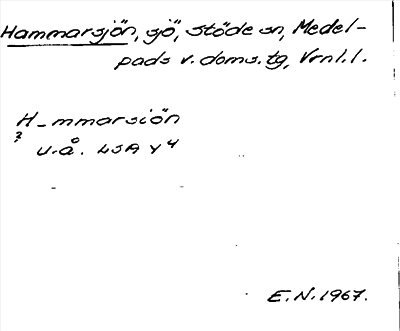 Hammarsjön, sjö, Stöde sn, Medel-
pads v. doms.tg, Vrnl.l.
H-mmarsiön
?
u.å. LSA Y4
E.N. 1967.